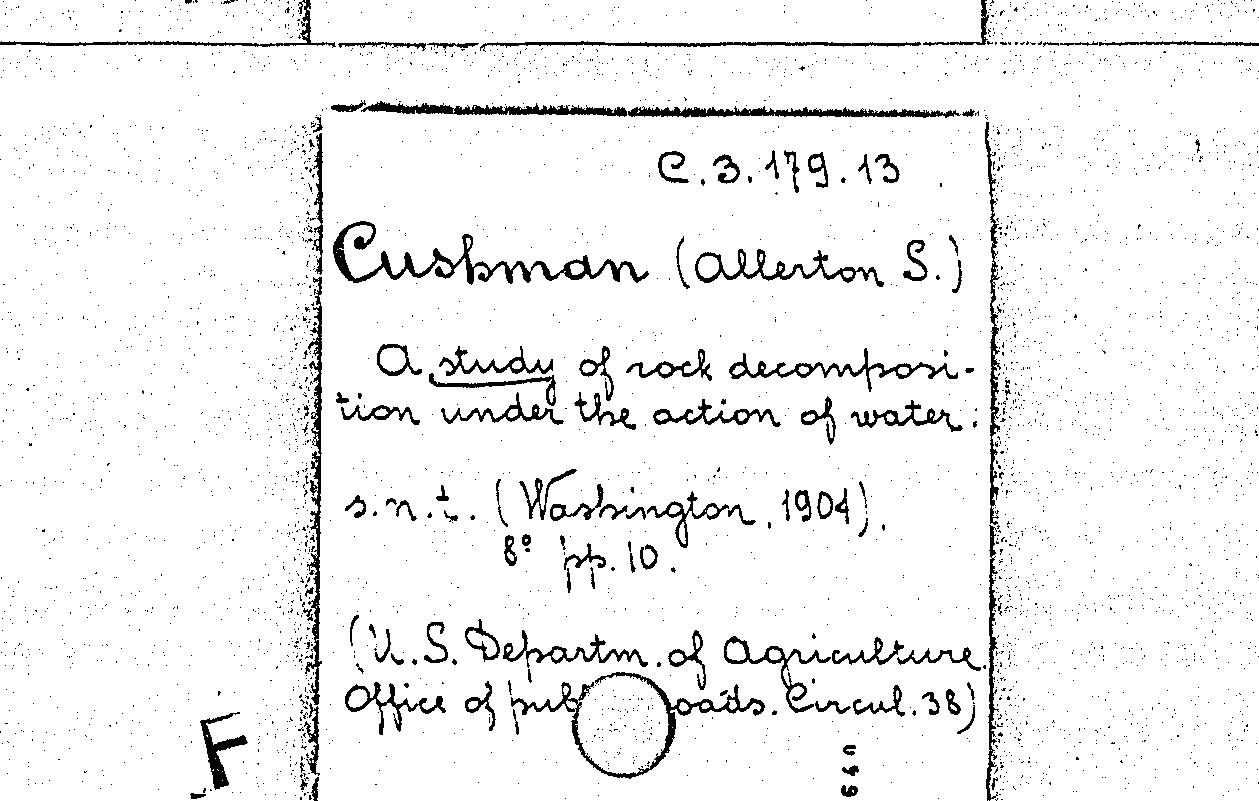 C.3.179.13
Cushman (Allerton S.)
A study of rock decomposi-
tion under the action of water.
s.n.t. (Washington, 1904).
8° pp. 10.
(U.S. Departm. of Agriculture
Office of pub oads. Circul. 38)
F